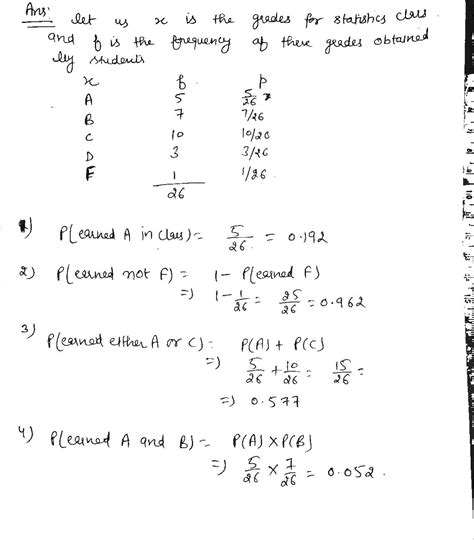 Ans: let us x is the grades for statistics class.
and f is the frequency of these grades obtained
by students
x f p
A 5 5/26
B 7 7/26
C 10 10/26
D 3 3/26
F 1 1/26
26
1) P(earned A in class) = 5/26 = 0.192
2) P(earned not F) = 1 - P(earned F)
=) 1 - 1/26 = 25/26 = 0.962
3) P(earned either A or C) = P(A) + P(C)
=) 5/26 + 10/26 = 15/26 =
=) 0.577
4) P(earned A and B) = P(A) X P(B)
=) 5/26 x 7/26 = 0.052.